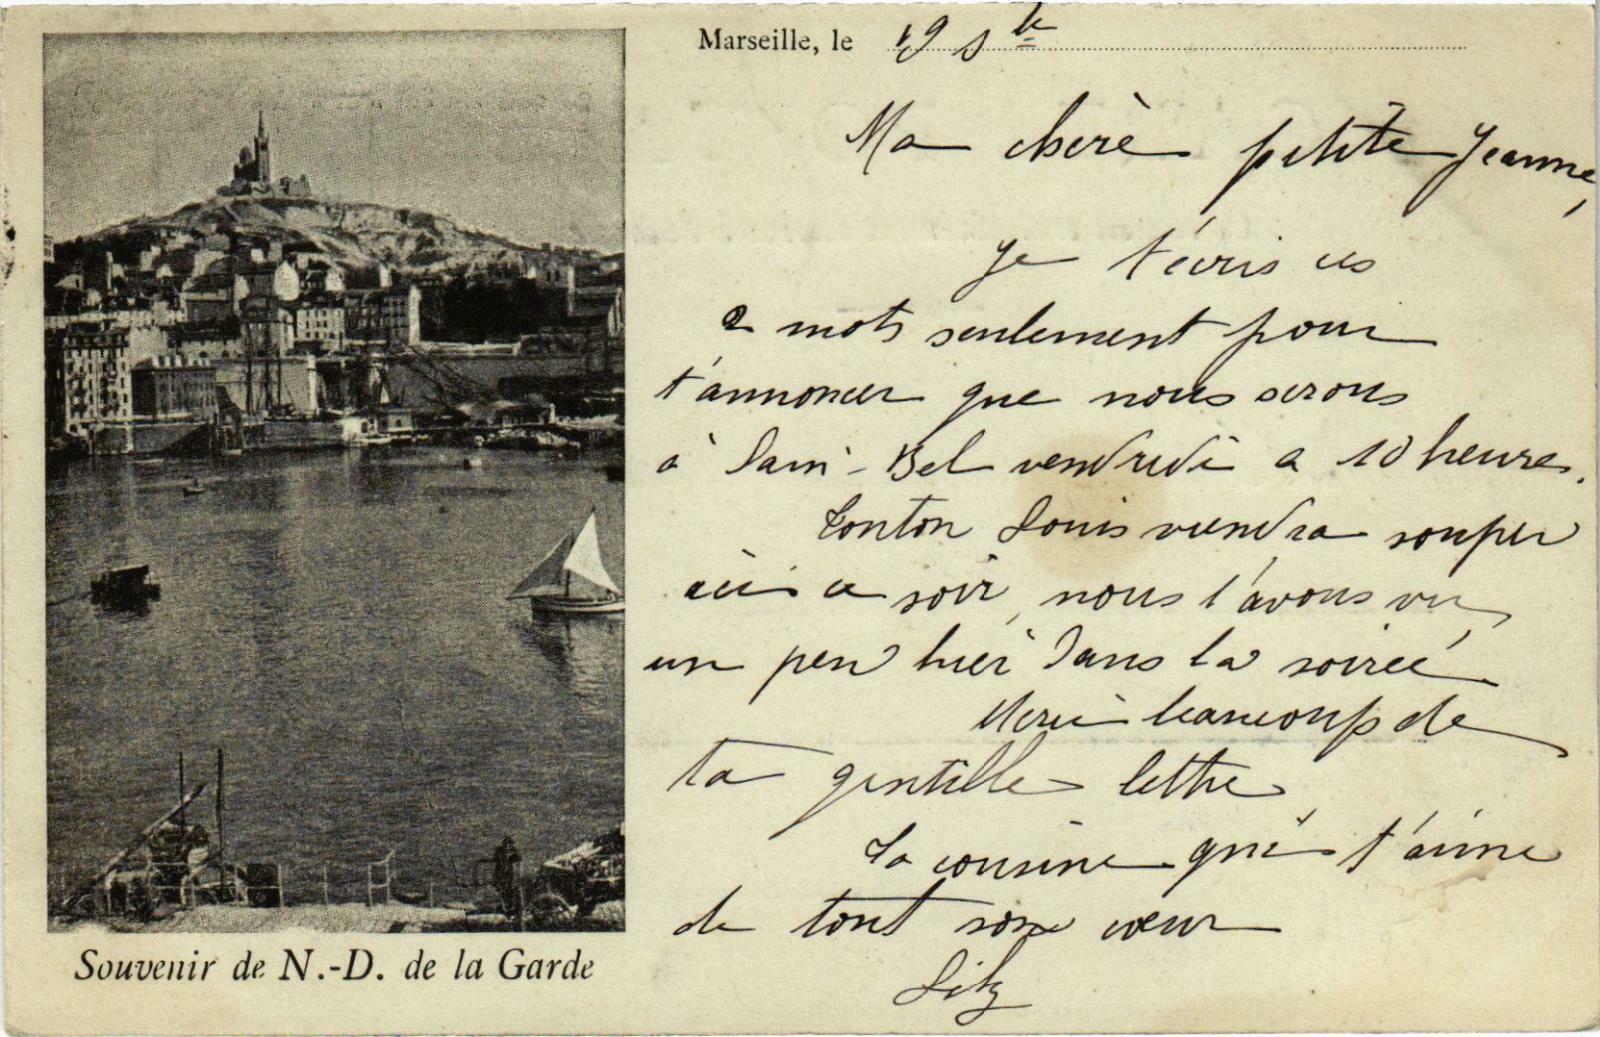 Marseille, le 19 Sbre
Ma chère petite Jeanne,
Je t'écris ces
2 mots seulement pour
t'annoncer que nous serons
à Sain-Bel vendredi a 10 heures.
Tonton Louis viendra souper
ici ce soir, nous l'avons vu
un peu hier dans la soirée.
Merci beaucoup de
ta gentille lettre.
Ta cousine qui t'aime
de tout son cœur
Souvenir de N.-D. de la Garde